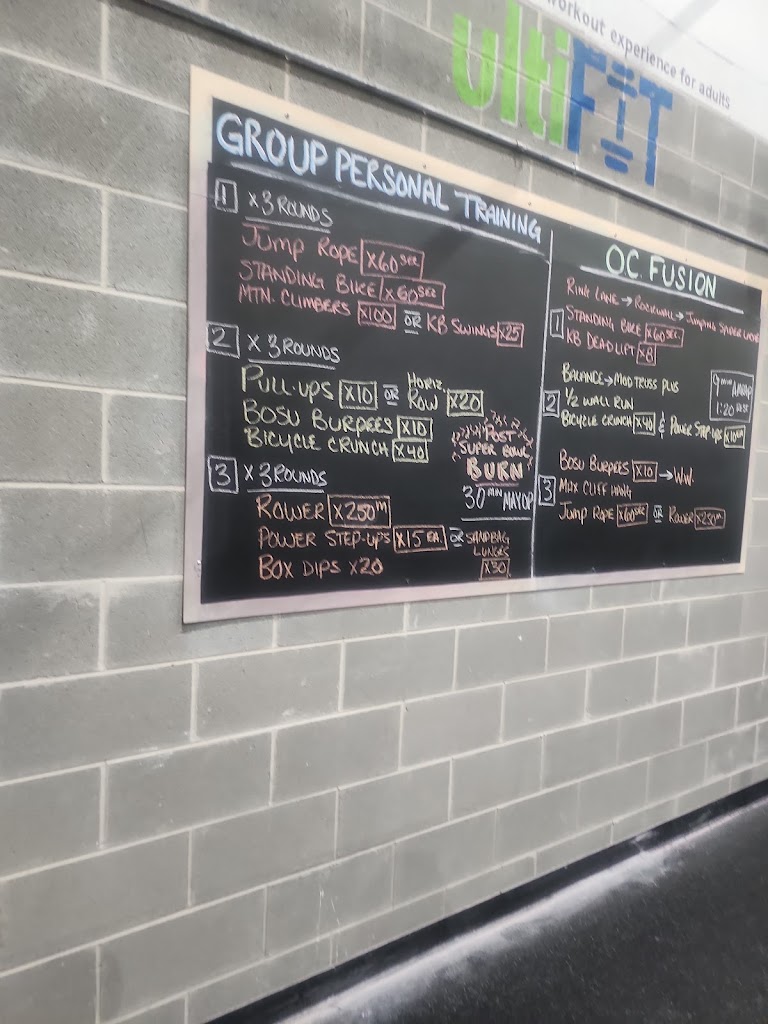 workout experience for adults
ultiFIT
GROUP PERSONAL TRAINING
1 X 3 ROUNDS
JUMP ROPE X60 SEC
STANDING BIKE X60 SEC
MTN. CLIMBERS X100 OR KB SWINGS X25
2 X 3 ROUNDS
PULL-UPS X10 OR HORIZ. ROW X20
BOSU BURPEES X10
BICYCLE CRUNCH X40
POST
SUPER BOWL
BURN
30 MIN MAYOP
3 X 3 ROUNDS
ROWER X250M
POWER STEP-UPS X15 EA. OR SANDBAG LUNGES X30
BOX DIPS X20
OC. FUSION
RING LANE → ROCKWALL → JUMPING SPIDER
1 STANDING BIKE X60 SEC
KB DEADLIFT X8
BALANCE → MOD TRUSS PLUS
2 1/2 WALL RUN
BICYCLE CRUNCH X40 & POWER STEP-UPS
9 MIN AMRAP
1:20
BOSU BURPEES X10 → W.W.
3 MAX CLIFF HANG
JUMP ROPE X60 SEC OR ROWER X250M